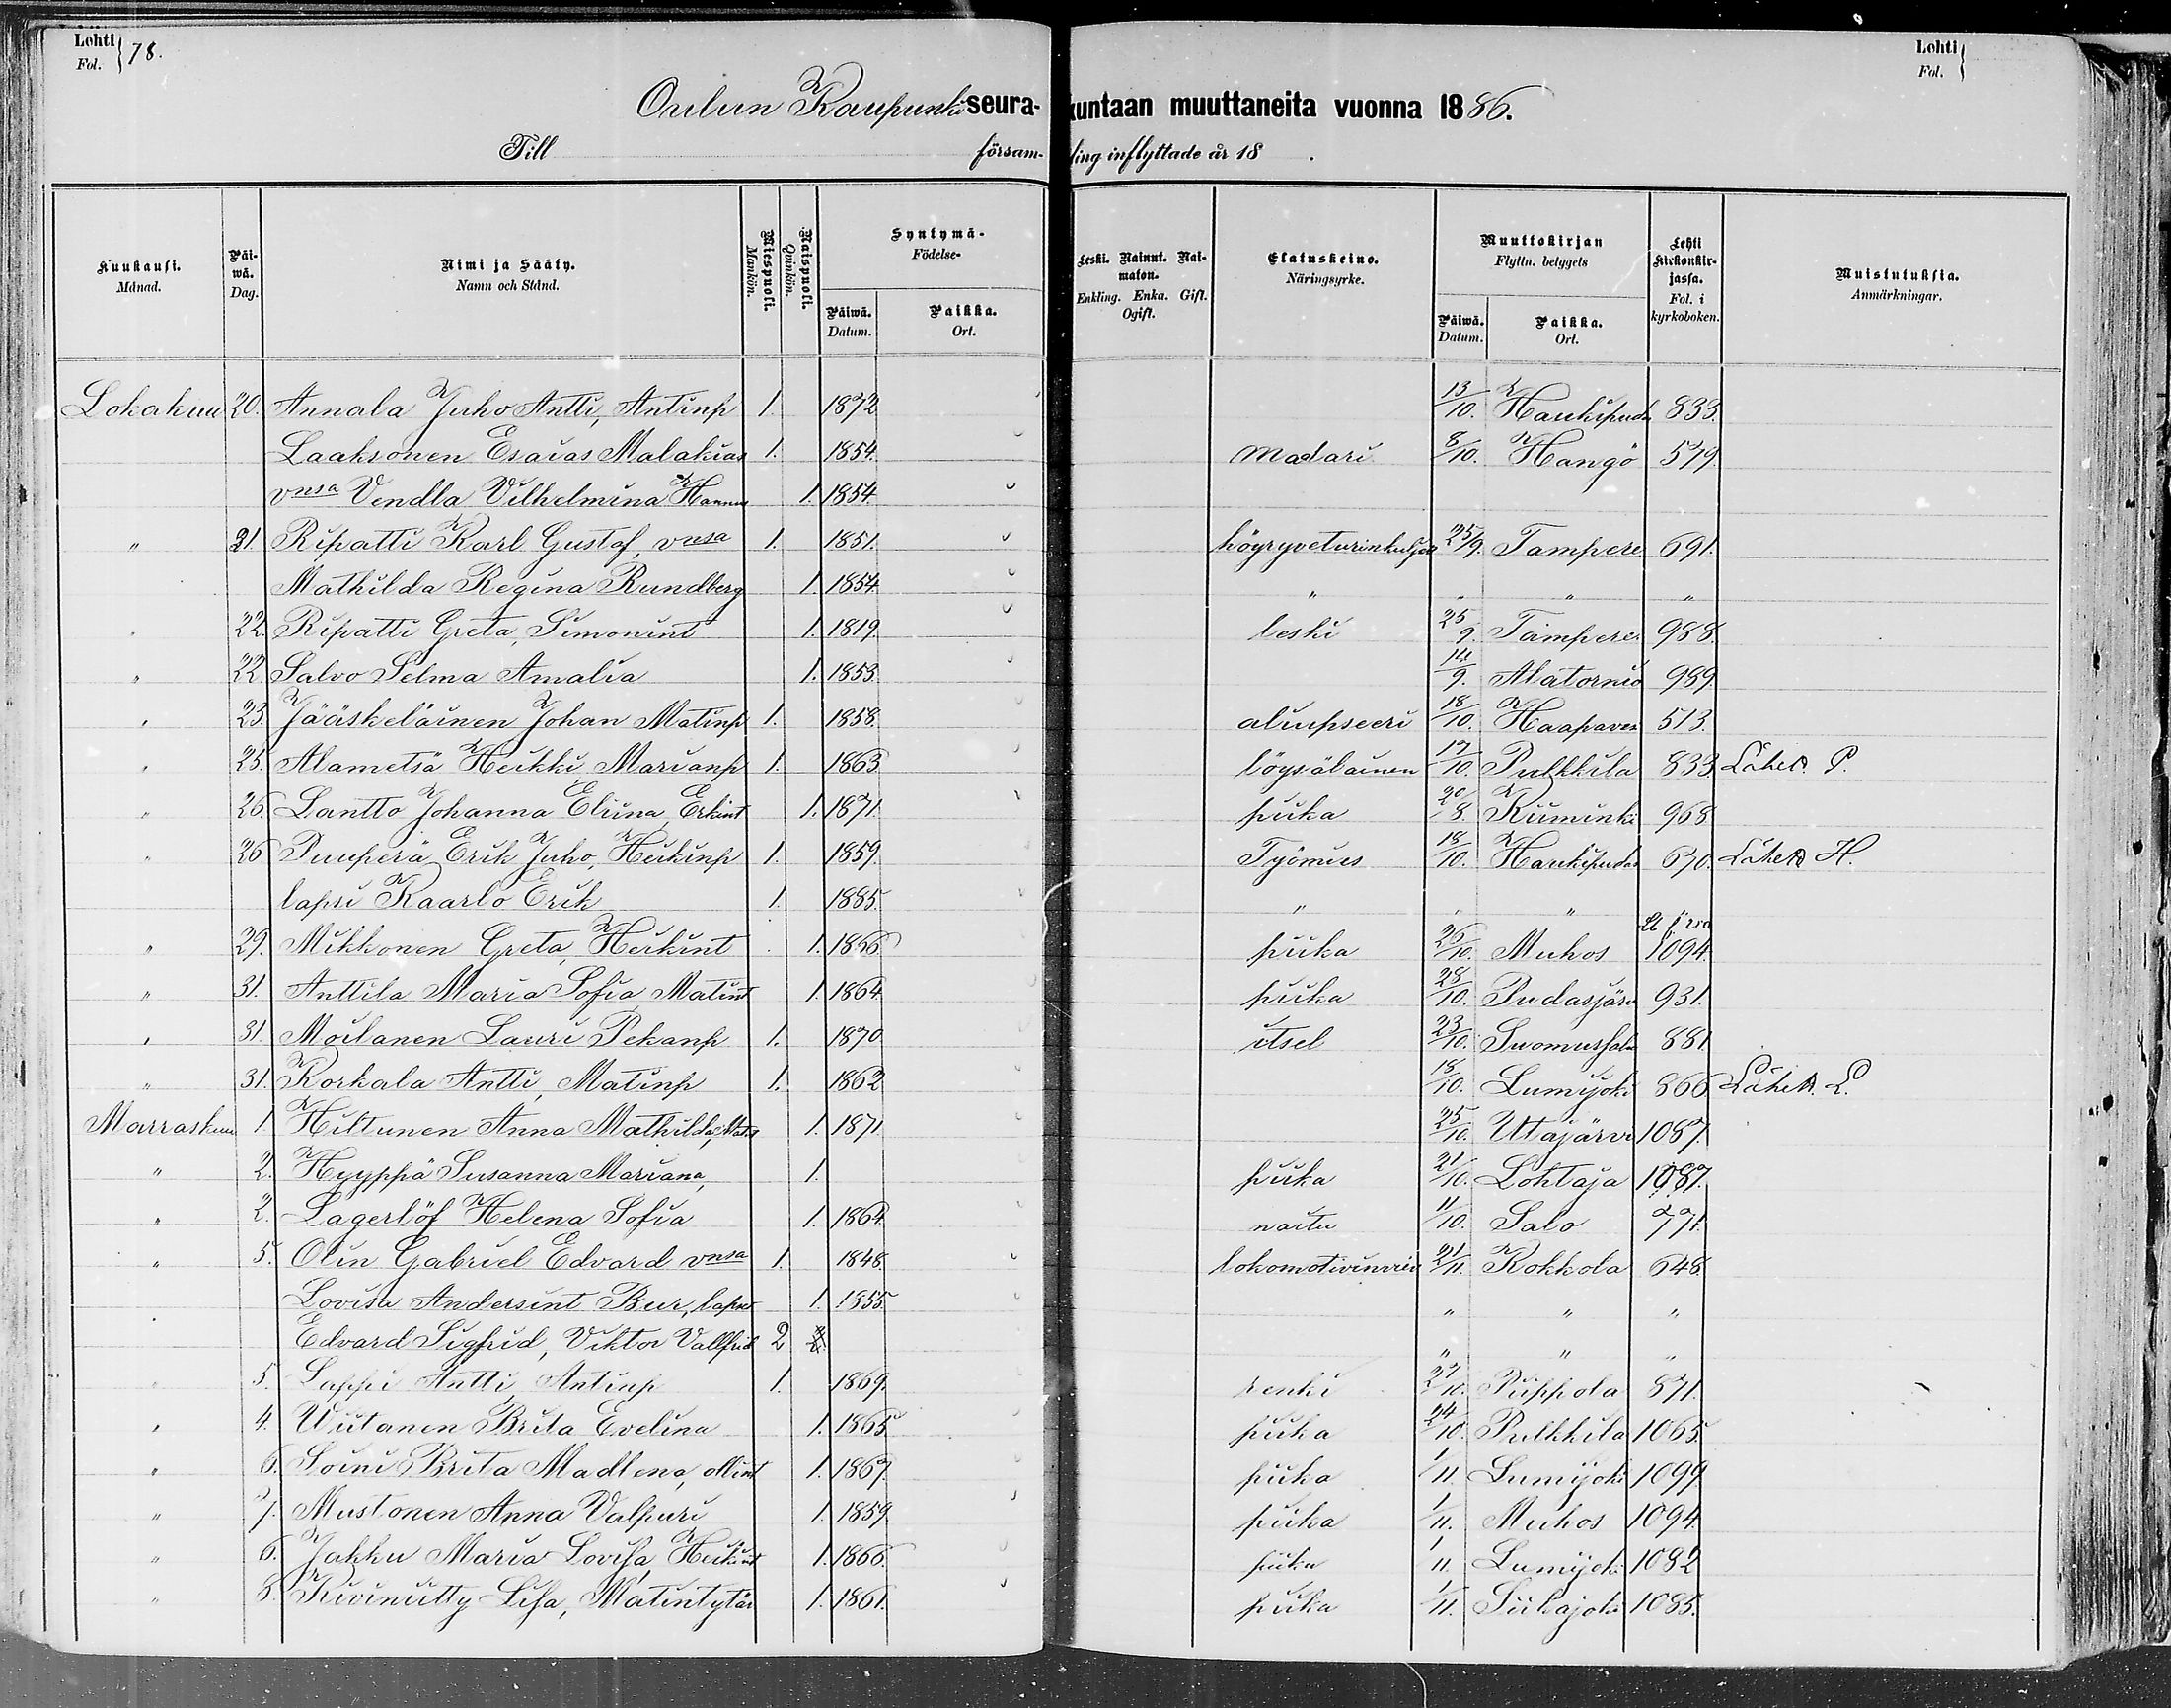 Lehti Fol. } 78.
Lehti Fol. }
Oulun Kaupunki seurakuntaan muuttaneita vuonna 1886.
Till försam-ling inflyttade år 18 .
Kuukausi. Månad. | Päiwä. Dag. | Nimi ja Sääty. Namn och Stånd. | Miespuoli. Mankön. | Naispuoli. Qvinkön. | Syntymä- Födelse- Päiwä. Datum. | Paikka. Ort. | Leski. Nainut. Naimaton. Enkling. Enka. Gift. Ogift. | Elatuskeino. Näringsyrke. | Muuttokirjan Flyttn. betygets Päiwä. Datum. | Paikka. Ort. | Lehti kirkonkirjassa. Fol. i kyrkoboken. | Muistutuksia. Anmärkningar.
Lokakuu 20. Annala Juho Antti, Antinp 1. 1872 13/10. Haukipud 833.
Laaksonen Esaias Malakias 1. 1854. Maalari 8/10. Hangö 579.
vnsa Vendla Vilhelmina Hannus 1. 1854.
" 21. Ripatti Karl Gustaf, vnsa 1. 1851. höyryveturinkulj 25/9. Tampere 691.
Mathilda Regina Rundberg 1. 1854. " " " "
" 22. Ripatti Greta, Simonint 1. 1819. leski 25/9. Tampere 988.
" 22. Salvo Selma Amalia 1. 1853. 14/9. Alatornio 989.
" 23. Jääskeläinen Johan Matinp 1. 1858. aliupseeri 18/10. Haapaves 513.
" 25. Alametsä Heikki Marianp 1. 1863 löysäläinen 17/10. Pulkkila 833 P.
" 26. Lantto Johanna Eliina, Erkint 1. 1871. piika 20/8. Kiiminki 968.
" 26 Puuperä Erik Juho, Heikinp 1. 1859. Työmies 18/10. Haukipudas 670. H.
lapsi Kaarlo Erik 1. 1885. " " "
" 29. Mikkonen Greta, Heikint 1. 1866 piika 26/10. Muhos 1094.
" 31. Anttila Maria Sofia Matint 1. 1864. piika 28/10. Pudasjärv 931.
" 31. Moilanen Lauri Pekanp 1. 1870. itsel 23/10. Suomussal 881.
" 31. Korkala Antti, Matinp 1. 1862 18/10. Lumijoki 866 L.
Marraskuu 1. Hiltunen Anna Mathilda, 1. 1871. 25/10. Utajärvi 1087.
" 2. Hyyppä Susanna Mariana, 1. piika 21/10. Lohtaja 1087.
" 2. Lagerlöf Helena Sofia 1. 1864. naitu 11/10. Salo 771.
" 5. Olin Gabriel Edvard vnsa 1. 1848. lokomotivinvii 21/11. Kokkola 648.
Lovisa Andersint Bur, lapset 1. 1855. " " "
Edvard Sigfrid, Viktor Vallfrid 2 " " "
" 5. Lappi Antti Antinp 1. 1869. renki 27/10. Piippola 871.
" 4. Wiitanen Brita Evelina 1. 1865 piika 24/10. Pulkkila 1065.
" 6. Soini Brita Madlena, ollint 1. 1867. piika 1/11. Lumijoki 1099.
" 7. Mustonen Anna Valpuri 1. 1859. piika 1/11. Muhos 1094.
" 6. Jakku Maria Lovisa, Heikint 1. 1866. piika 1/11. Lumijoki 1082
" 8. Kiviniitty Lisa, Matintytär 1. 1861. piika 1/11. Siikajoki 1085.